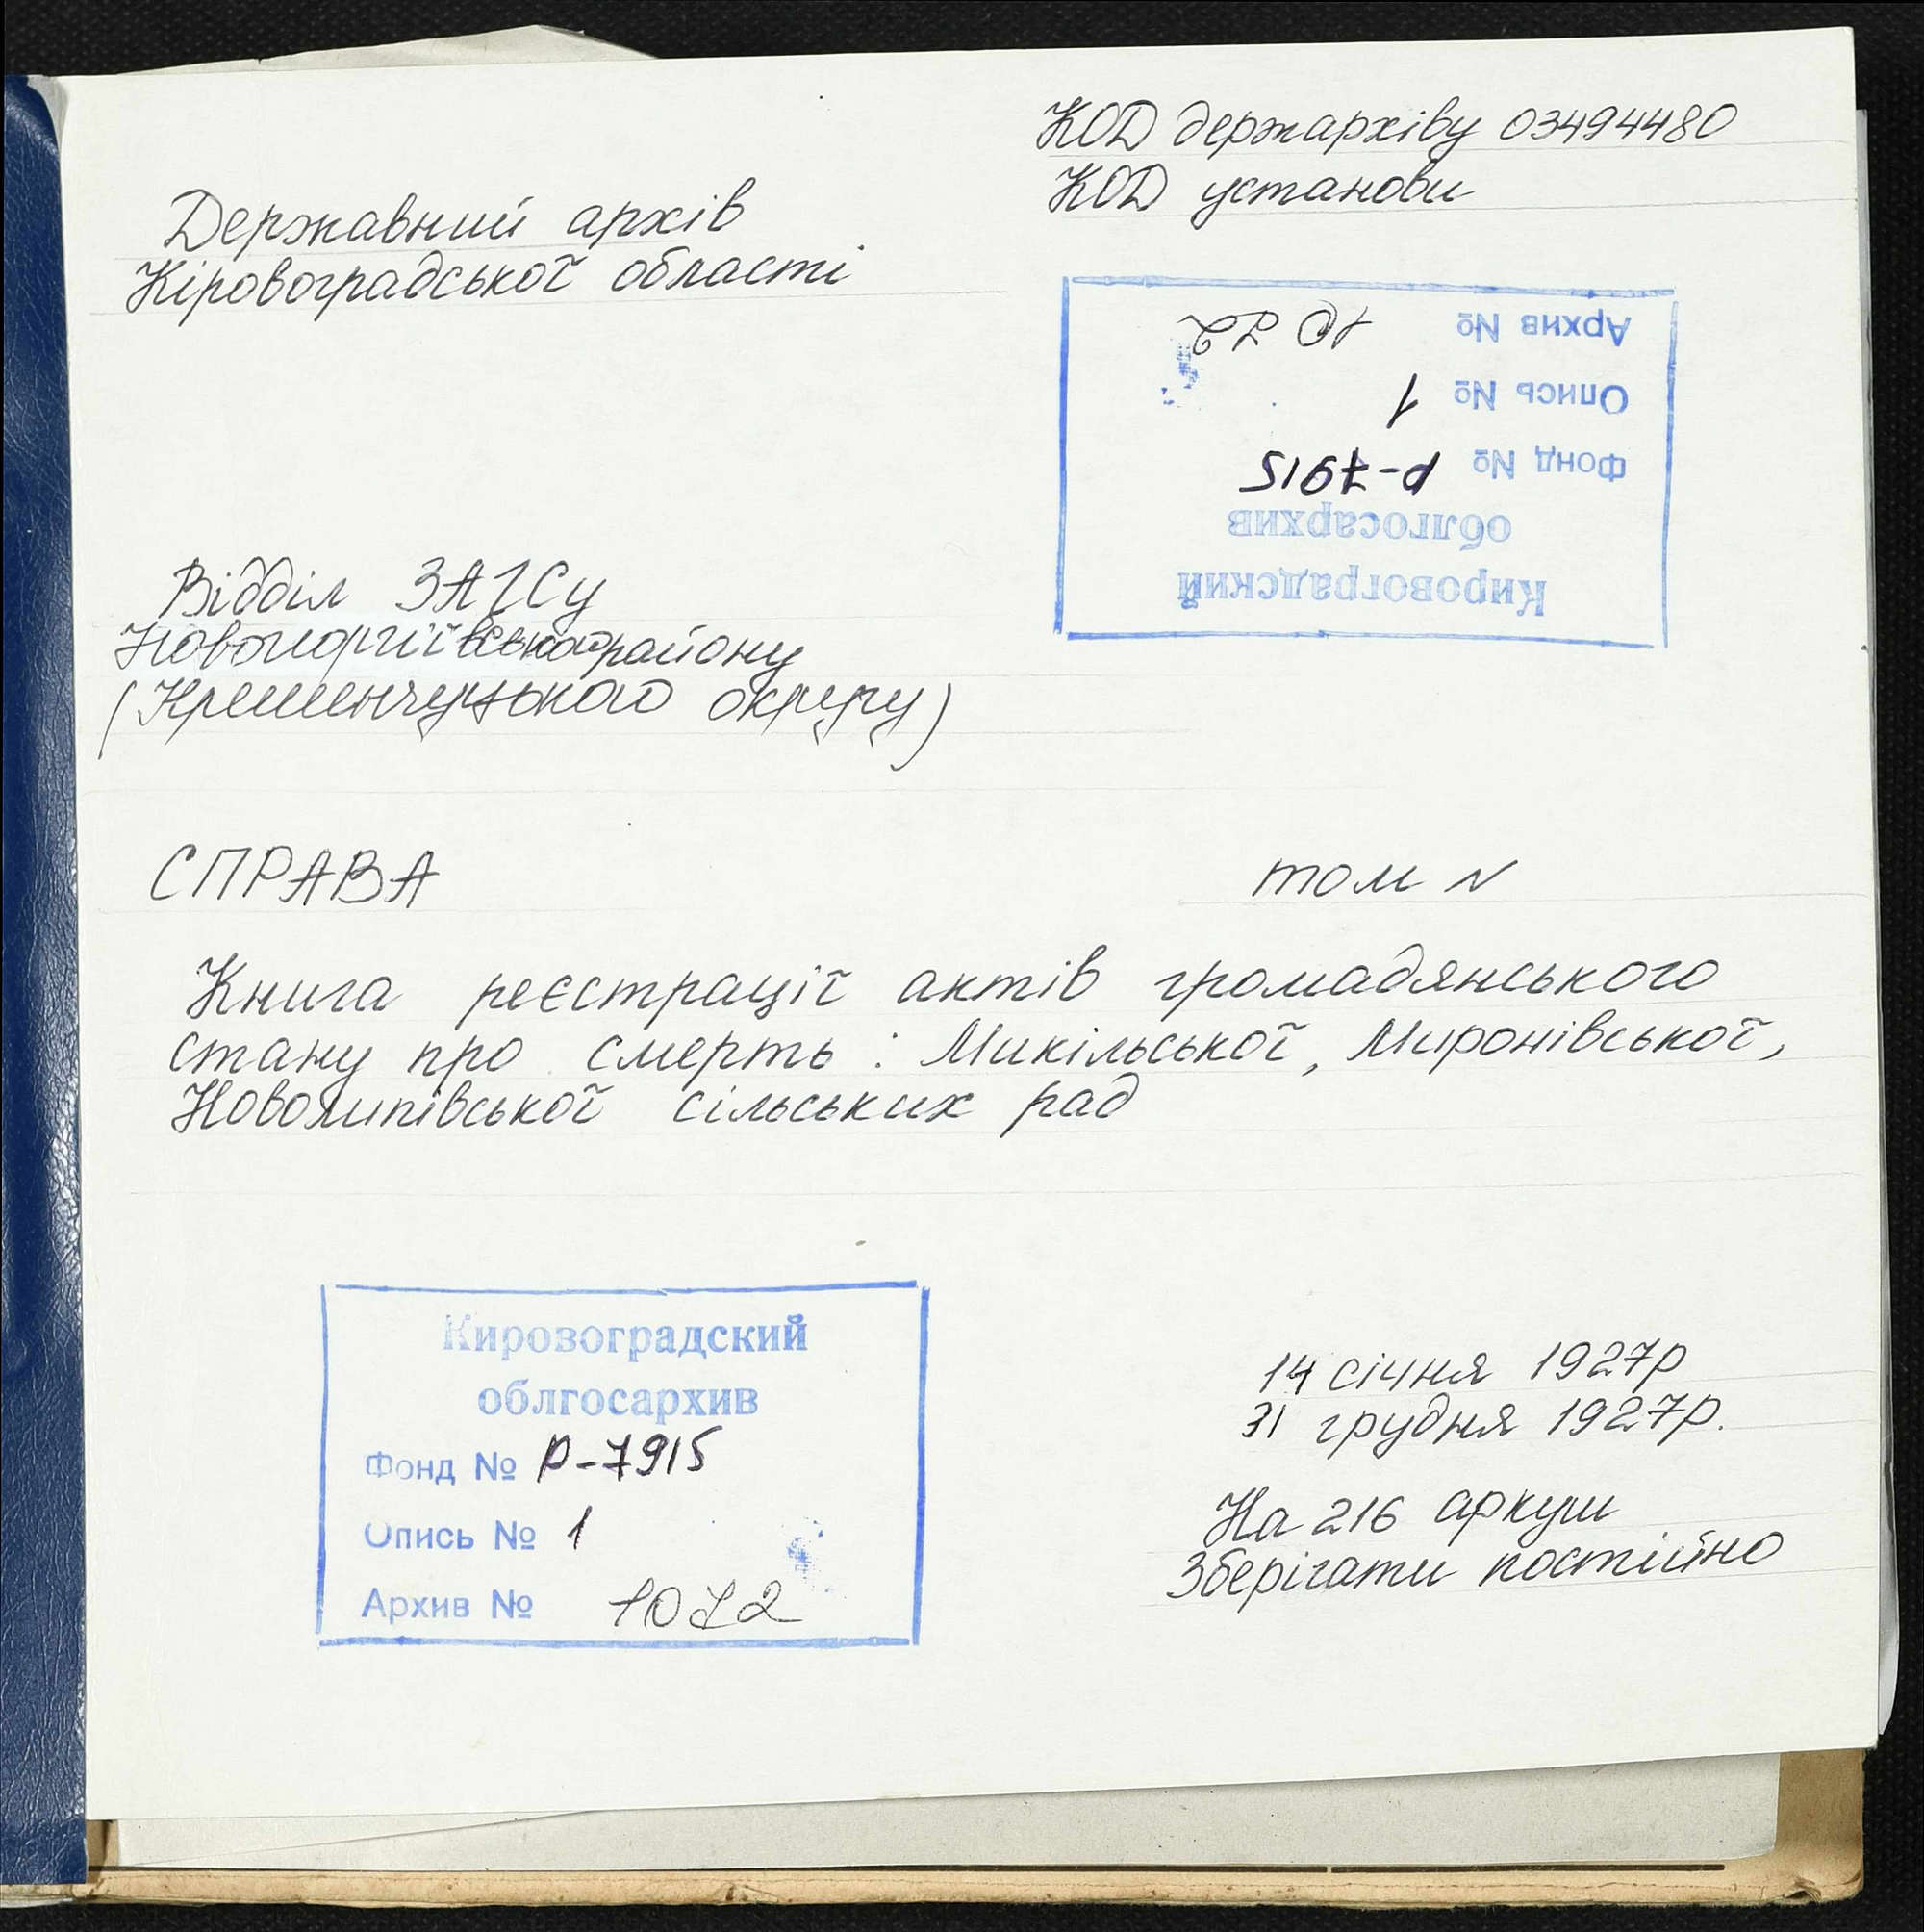 КОД держархіву 03494480
КОД установи
Державний архів
Кіровоградської області
Кировоградский
облгосархив
Фонд № Р-7915
Опись № 1
Архив № 1022
Відділ ЗАГСу
Новогеоргіївського району
(Кременчуцького округу)
СПРАВА том N
Книга реєстрації актів громадянського
стану про смерть: Микільської, Миронівської,
Новолипівської сільських рад
Кировоградский
облгосархив
Фонд № Р-7915
Опись № 1
Архив №
14 січня 1927р
31 грудня 1927р.
На 216 аркуш
Зберігати постійно